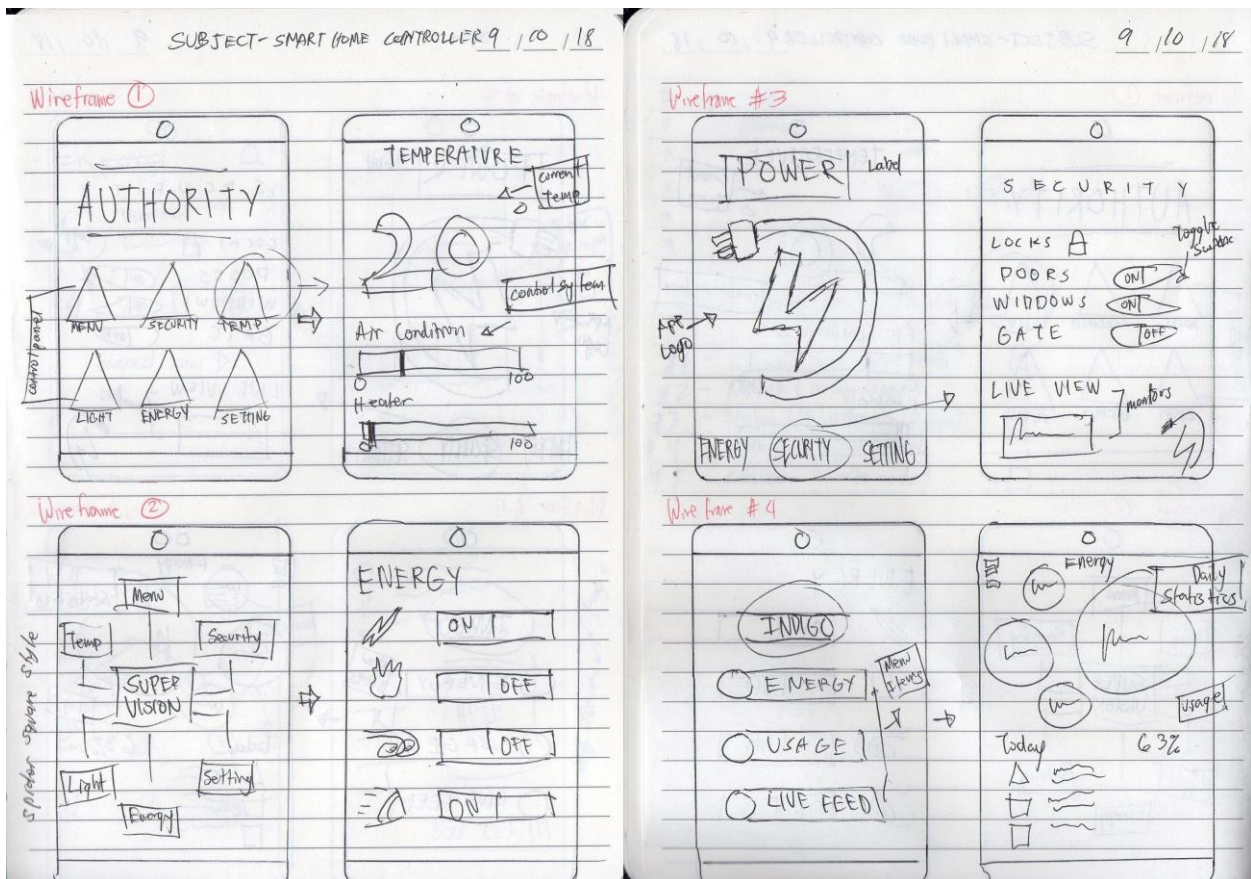 SUBJECT-SMART HOME CONTROLLER 9/10/18
Wireframe ①
AUTHORITY
MENU SECURITY TEMP
LIGHT ENERGY SETTING
control panel
TEMPERATURE
current
temp
20
control system
Air Condition
0 100
Heater
0 100
Wireframe ②
spider square style
Menu
Temp Security
SUPER
VISION
Light Setting
Energy
ENERGY
ON
OFF
OFF
ON
9/10/18
Wireframe #3
POWER Label
APP
Logo
ENERGY SECURITY SETTING
SECURITY
LOCKS
Toggle
DOORS ON
WINDOWS ON
GATE OFF
LIVE VIEW
monitors
Wireframe #4
INDIGO
Menu
Items
ENERGY
USAGE
LIVE FEED
Energy
Daily
Statistics
usage
Today 63%